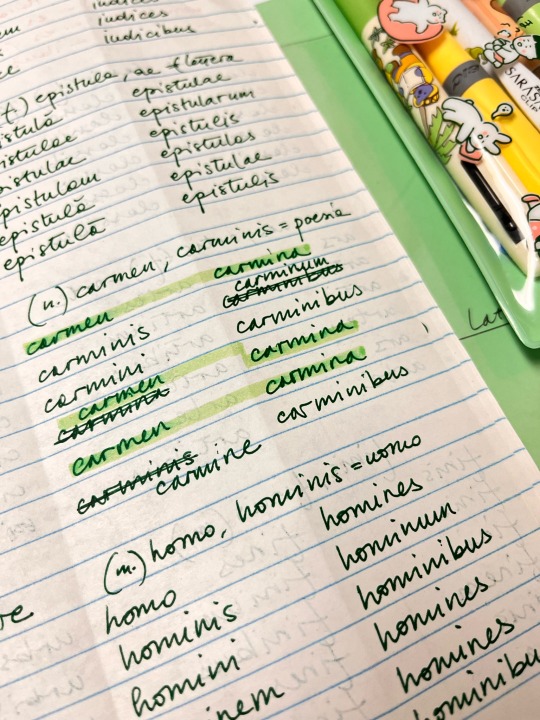 indices
indices
indicibus
epistula, ae
epistulae
epistularum
epistulis
epistulas
epistulae
epistulis
epistulā
epistulā
(n.) carmen, carminis = poesia
carmen carmina
carminis carminum
carminum
carmini carminibus
carmen carmina
carmina
carmen carmina
carminis carmine carminibus
(m.) homo, hominis = uomo
homo homines
hominis hominum
homini hominibus
homines
homines
SARASA
CLIP
Lat